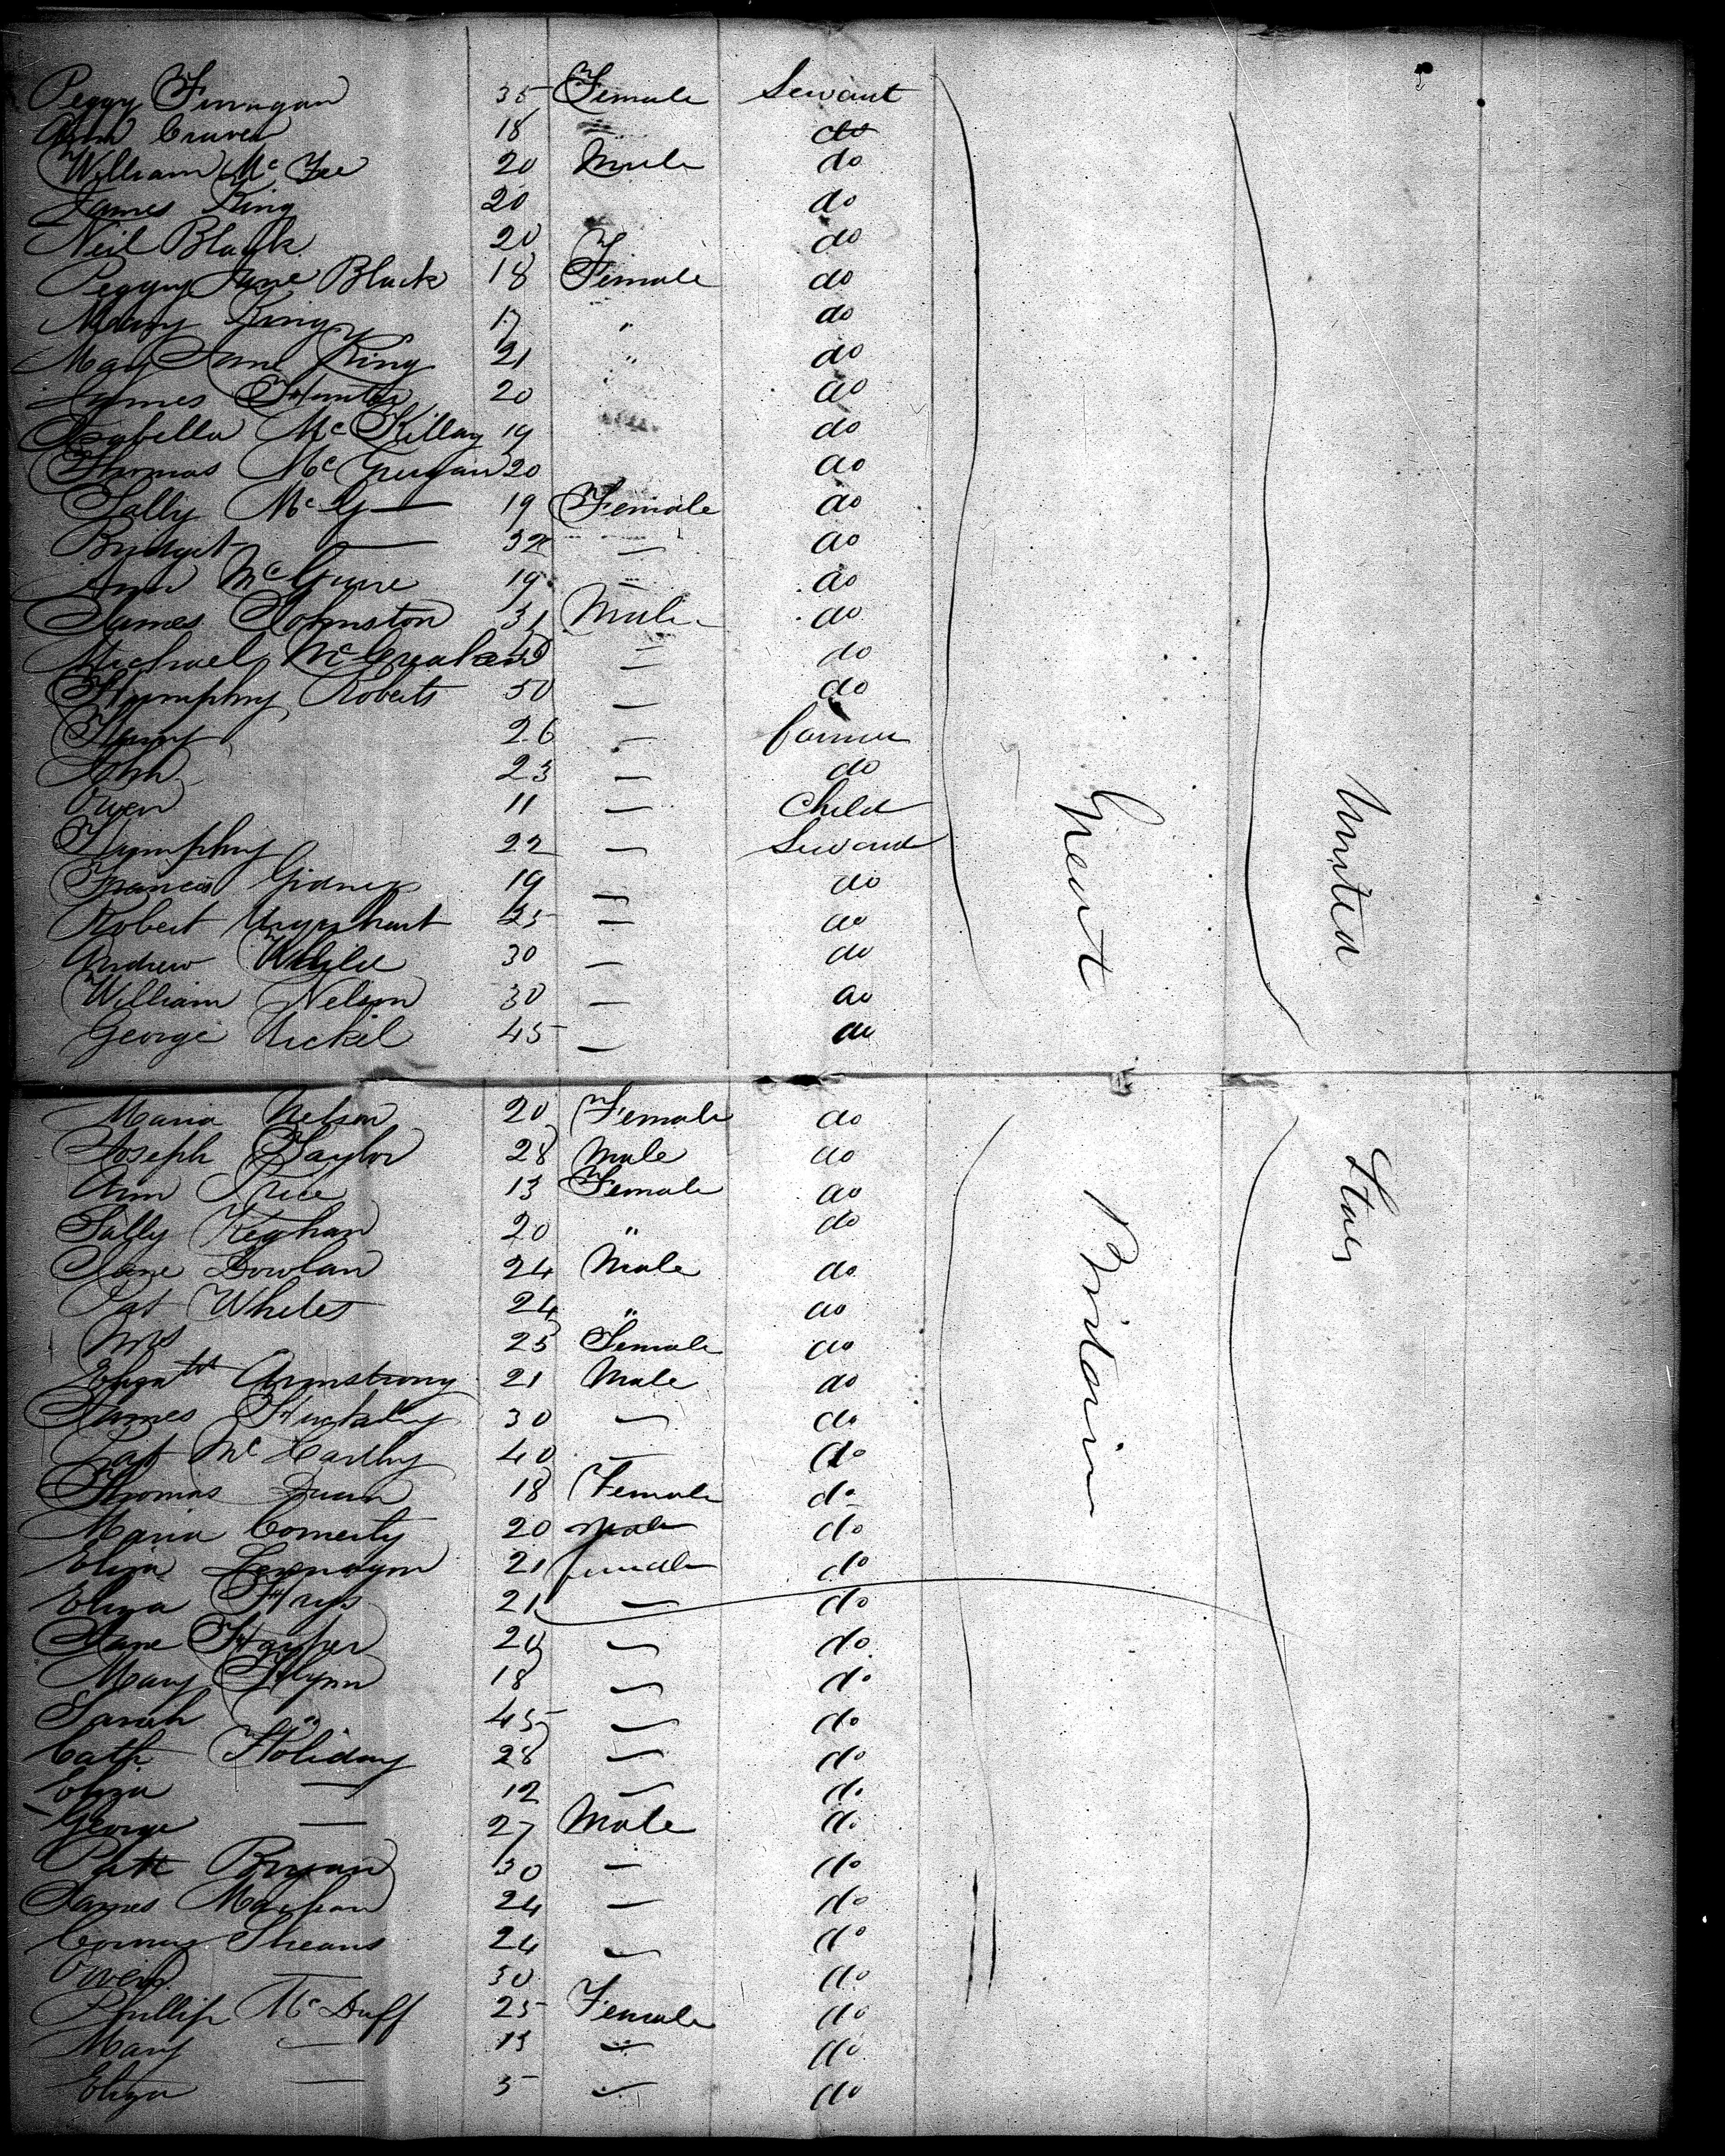 Peggy Finnagan 35 Female Servant
Ann Craven 18 do
William McFee 20 Male do
James King 20 do
Neil Black 20 do
Peggy Jane Black 18 Female do
Mary King 17 " do
May Jane King 21 " do
James Hunter 20 do
Isabella McKillay 19 do
Thomas 20 do
Sally McG — 19 Female do
Bridget — 32 — do
Ann McGuire 19 — do
James Johnston 31 Male do
Michael — do
Humphry Roberts 50 — do
Harry 26 — farmer
John 23 — do
Owen 11 — Child
Humphry 22 — Servant
Francis Gidney 19 — do
Robert 25 — do
Andrew 30 — do
William Nelson 30 — do
George Nickel 45 — do
Great
United
Maria Nelson 20 Female do
Joseph Taylor 28 Male do
Ann Price 13 Female do
Sally Keghan 20 " do
Jane Dowlan 24 Male do
Pat Whiles 24 " do
Mrs 25 Female do
Elizath Armstrong 21 Male do
James 30 — do
Pat McCarthy 40 — do
Thomas 18 Female do
Maria Comerty 20 Male do
Eliza 21 female do
Eliza 21 — do
Jane Harper 20 — do
Mary Flynn 18 — do
Sarah " 45 — do
Cath Holiday 28 — do
Eliza — 12 — do
George — 27 Male do
Patk Bryan 30 — do
James 24 — do
24 — do
Owen — 30 do
Phillip McDuff 25 Female do
Mary — 13 — do
Eliza — 5 — do
Britain
States